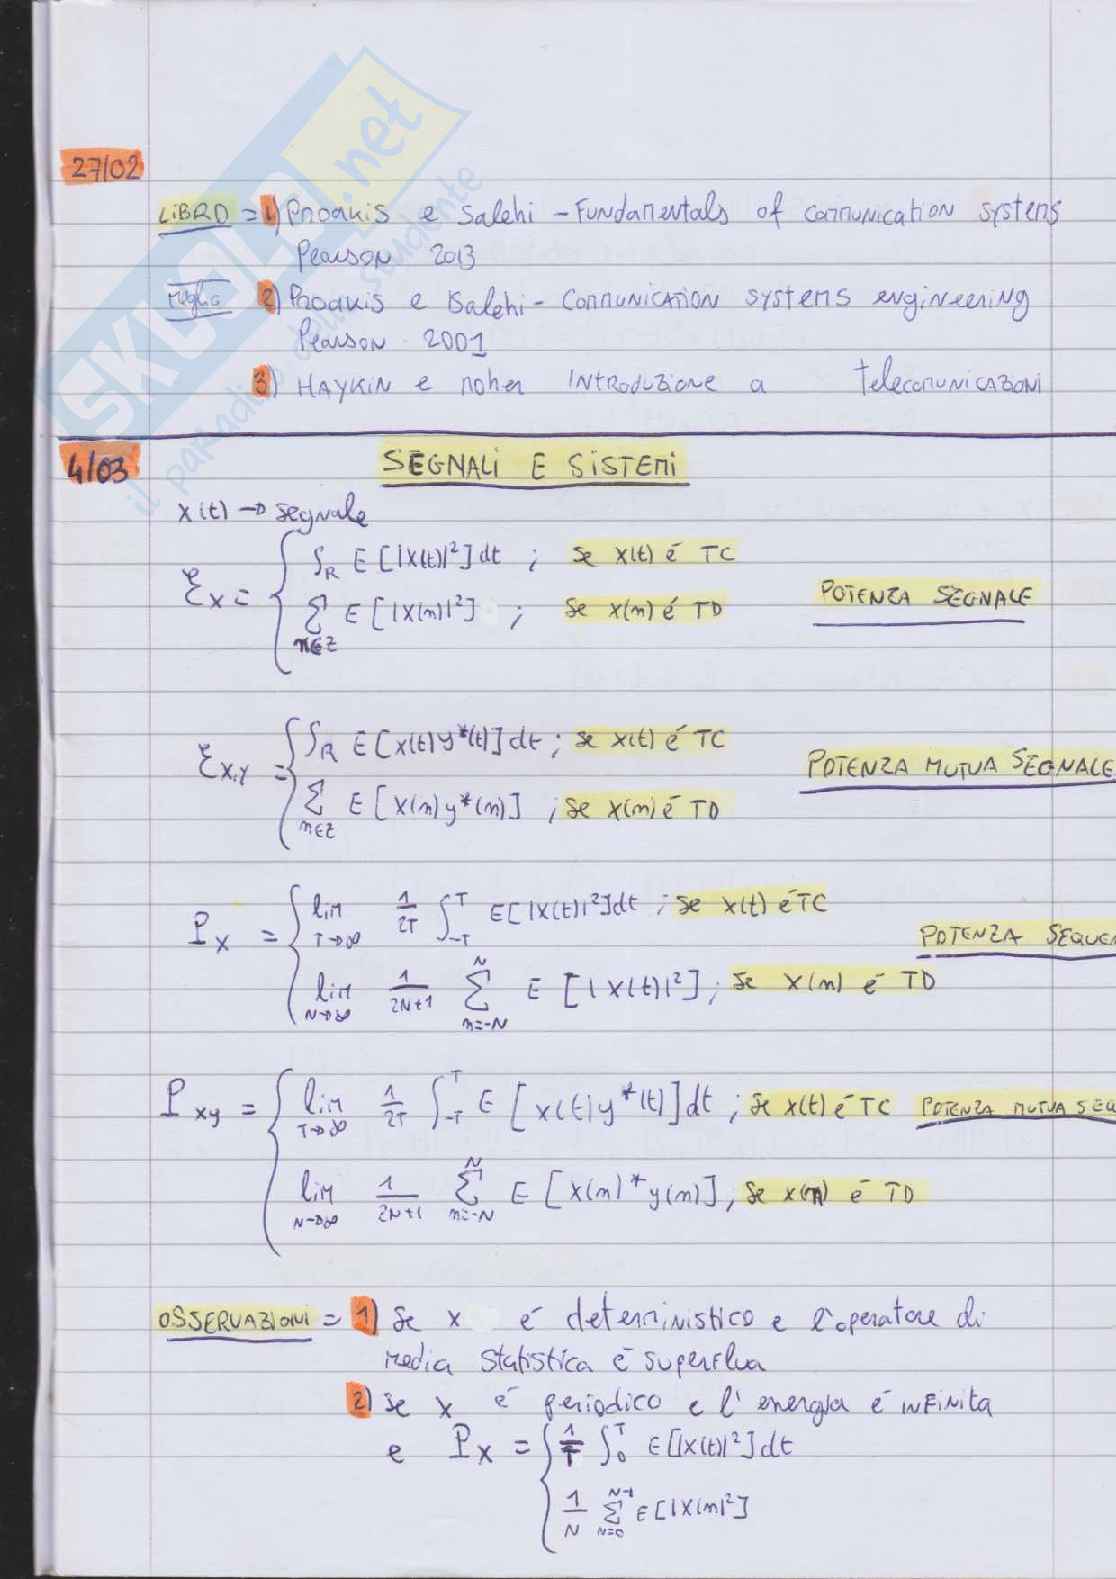 27/02
LIBRO = 1) Proakis e Salehi - Fundamentals of communication systems
Pearson 2013
Meglio 2) Proakis e Salehi - Communication systems engineering
Pearson 2001
3) HAYKIN e moher INtRODUZIONE a telecomunicazioni
4/03
SEGNALI E SISTEMI
x(t) → segnale
ℰx = { ∫R E[|x(t)|²]dt ; se x(t) é TC
∑n∈Z E[|x(n)|²] ; se x(n) é TD
POTENZA SEGNALE
ℰx,y = { ∫R E[x(t)y*(t)]dt ; se x(t) é TC
∑n∈Z E[x(n)y*(n)] ; se x(n) é TD
POTENZA MUTUA SEGNALE
Px = { lim T→∞ 1/2T ∫-T^T E[|x(t)|²]dt ; se x(t) é TC
lim N→∞ 1/2N+1 ∑n=-N^N E[|x(t)|²] ; se x(n) é TD
POTENZA SEQUEN
Pxy = { lim T→∞ 1/2T ∫-T^T E[x(t)y*(t)]dt ; se x(t) é TC
POTENZA MUTUA SEQU
lim N→∞ 1/2N+1 ∑n=-N^N E[x(n)*y(n)], se x(n) é TD
OSSERVAZIONI = 1) Se x é deterministico e l'operatore di
media statistica é superflua
2) se x é periodico e l'energia é infinita
e Px = { 1/T ∫0^T E[|x(t)|²]dt
1/N ∑N=0^N-1 E[|x(n)|²]
SKUOLA.net
il paradiso dello studente